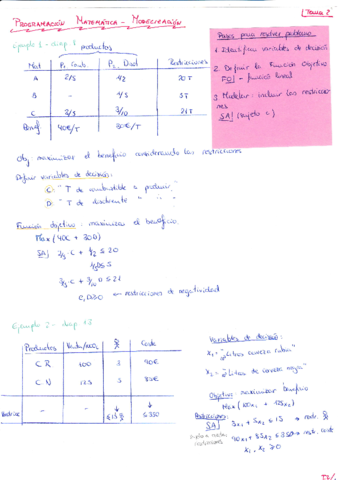 PROGRAMACIÓN MATEMÁTICA - MODELIZACIÓN
Tema 2
Ejemplo 1 - diap 7
productos
Mat P1 Comb. P2 Disol Restricciones
A 2/5 1/2 20 T
B - 1/5 5 T
C 3/5 3/10 21 T
Benef 40€/T 30€/T
Pasos para resolver problema
1. Identificar variables de decisión
2. Definir la Función Objetivo
FO! - función lineal
3. Modelar: incluir las restriccio
nes
SA! (sujeto a)
Obj maximizar el beneficio considerando las restricciones
Definir variables de decisión:
C: " T de combustible a producir"
D: " T de disolvente " "
Función objetivo: maximizar el beneficio.
Max (40C + 30D)
SA! 2/5 C + 1/2 ≤ 20
1/5 D ≤ 5
3/5 C + 3/10 D ≤ 21
C, D ≥ 0 restricciones de negatividad
Ejemplo 2 - diap 13
Productos Coste
CR 100 3 90€
CN 125 5 85€
- - ≤ 15 ≤ 350
Variables de decisión:
x1 = "litros cerveza rubia"
x2 = "litros de cerveza negra"
Objetivo maximizar beneficio
Max (100x1 + 125x2)
Restricciones:
SA! 3x1 + 5x2 ≤ 15 → restr.
90x1 + 85x2 ≤ 350 → restr. coste
x1, x2 ≥ 0